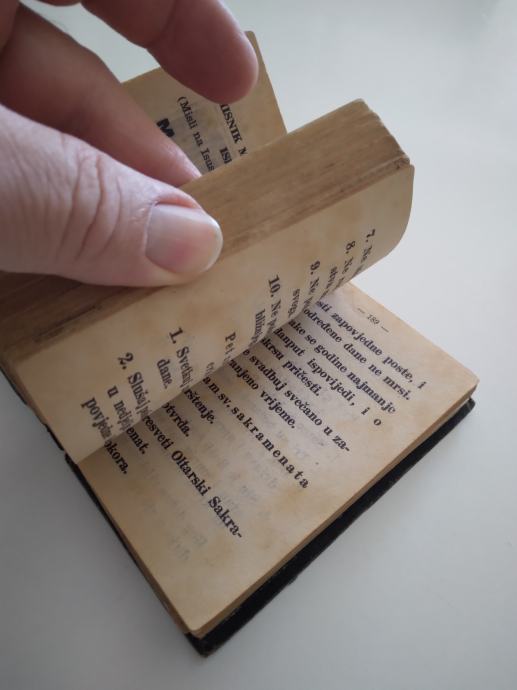 ISNIK
(Misli na Isus
7. Ne
8. Ne
9. Ne
10. Ne
1. Svetkuj
dane.
2. Slušaj
u nedje
povjed
— 189 —
sti zapovjedne poste, i
određene dane ne mrsi.
ake se godine najmanje
danput ispovijedi, i o
skrsu pričesti.
e svadbuj svečano u za-
anjeno vrijeme.
am sv. sakramenata
štenje.
tvrda.
resveti Oltarski Sakra-
enat.
kora.